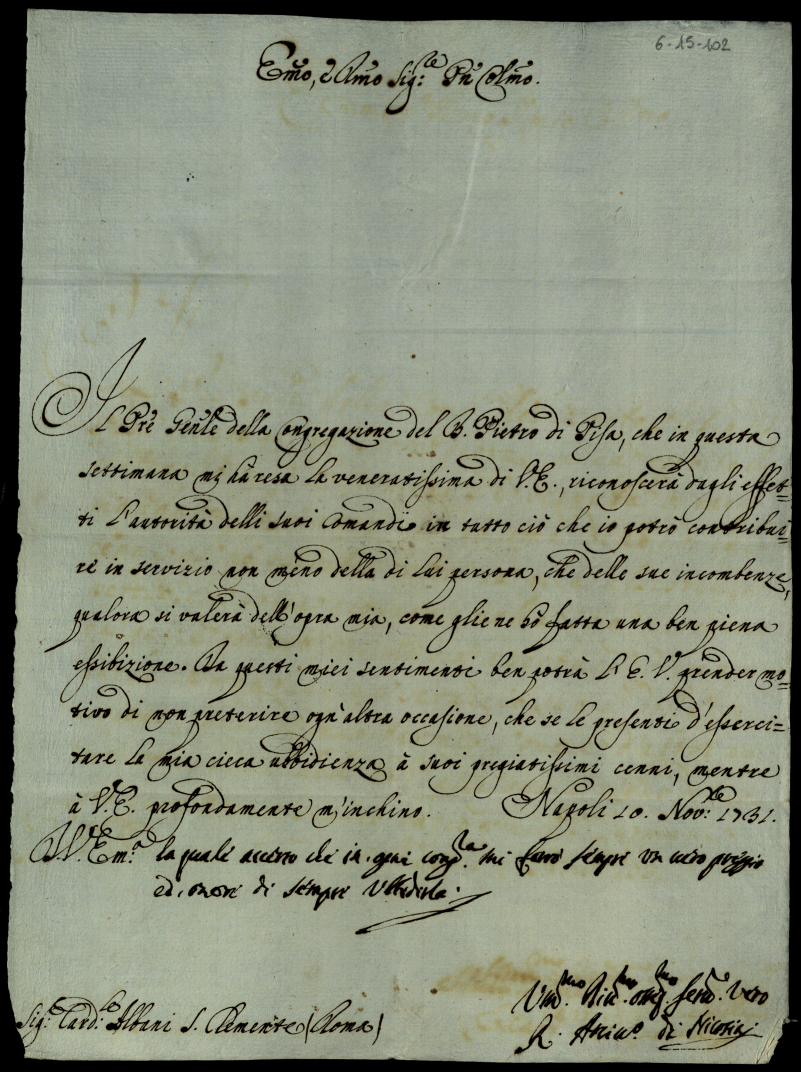 6-15-102
Em̃o, e Rm̃o Sig:re Pn̄ Colm̃o.
Il Prē Genlē della Congregazione del B. Pietro di Pisa, che in questa
settimana mi hà resa la veneratissima di V.E., riconoscerà dagli effet=
ti l'autorità delli suoi Comandi in tutto ciò che io potrò contribui=
re in servizio non meno della di lui persona, che delle sue incombenze,
qualora si valerà dell'opra mia, come gliene hò fatta una ben piena
essibizione. Da questi miei sentimenti ben potrà l'E.V. prender mo=
tivo di non preterire ogn'altra occasione, che se le presenti d'esserci=
tare la mia cieca ubbidienza à suoi pregiatissimi cenni, mentre
à V.E. profondamente m'inchino. Napoli 10. Nov:re 1731.
D.V. Em:a la quale accerto che in ogni cong:ra mi farò sempre un vero preggio
ed, onore di sempre Ubbidirla.
Um:mo Div:mo Oblig:mo Serv: Vero
R. Arciv:o di Nicosia
Sig:r Card:le Albani S. Clemente (Roma)